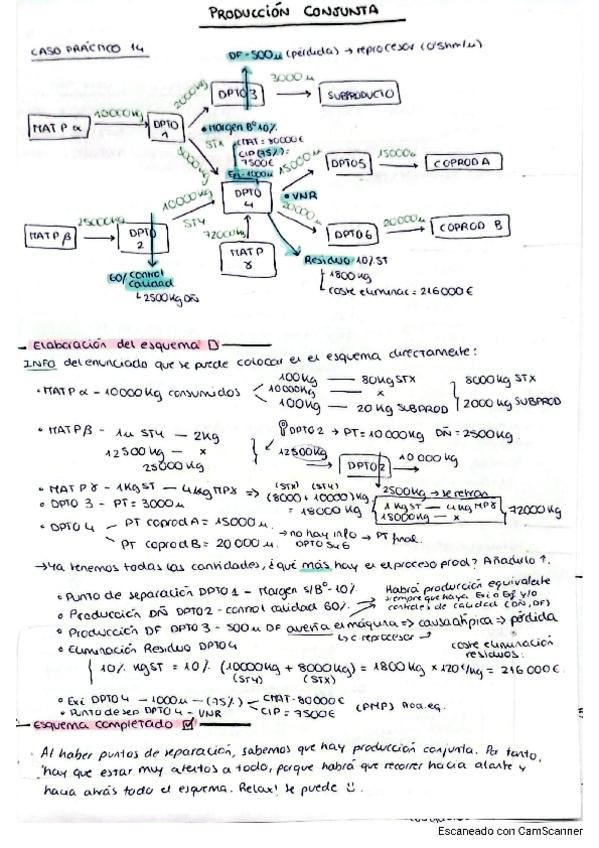 PRODUCCIÓN CONJUNTA
CASO PRÁCTICO 14
DF-500u (pérdida) → reprocesar (0'5hm/u)
MAT P α
10000kg
DPTO 1
2000kg
DPTO 3
3000u
SUBPRODUCTO
• Margen Bº 10%
8000kg
STX
CMAT = 80000€
CIP (75%): 7500€
Exi - 1000u
MAT P β
25000kg
DPTO 2
10000kg
ST4
DPTO 4
• VNR
15000u
DPTO 5
15000u
COPROD A
20000u
DPTO 6
20000u
COPROD B
72000kg
MAT P γ
60% control calidad
↳ 2500kg DÑ
Residuo 10% ST
1800kg
coste eliminar = 216000€
Elaboración del esquema
INFO del enunciado que se puede colocar en el esquema directamente:
• MAT P α - 10000kg consumidos
100kg — 80kg STX
10000kg — x
100kg — 20kg SUBPROD
8000kg STX
2000kg SUBPROD
• MAT P β - 1u ST4 — 2kg
12500kg — x
25000kg
DPTO 2 → PT = 10000kg DÑ = 2500kg.
12500kg
DPTO 2
10000kg
2500kg → se retiran
• MAT P γ - 1kg ST — 4kg MPγ => (8000 + 10000)kg = 18000kg
(STX) (ST4)
1kg ST — 4kg MPγ
18000kg — x
72000kg
• DPTO 3 - PT = 3000u
• DPTO 4
PT coprod A = 15000u
PT coprod B = 20000u
→ no hay info DPTO 5 y 6 → PT final.
→ Ya tenemos todas las cantidades, ¿qué más hay en el proceso prod? Añadirlo ↑.
• Punto de separación DPTO 1 - Margen S/Bº - 10%
• Producción DÑ DPTO 2 - control calidad 60%
Habrá producción equivalente siempre que haya Exi o Ef y/o controles de calidad (DÑ, DF)
• Producción DF DPTO 3 - 500u DF avería máquina => causa atípica → pérdida
↳ c reprocesar
• Eliminación Residuo DPTO 4
coste eliminación residuos:
10% kg ST = 10% (10000kg + 8000kg) = 1800kg x 120€/kg = 216000€.
(ST4) (STX)
• Exi DPTO 4 - 1000u - (75%)
CMAT - 80000€
CIP = 7500€
(PMP)
• Punto de sep DPTO 4 - VNR
Esquema completado
• Al haber puntos de separación, sabemos que hay producción conjunta. Por tanto,
hay que estar muy atentos a todo, porque habrá que recorrer hacia alante y
hacia atrás todo el esquema. Relax! Se puede
Escaneado con CamScanner